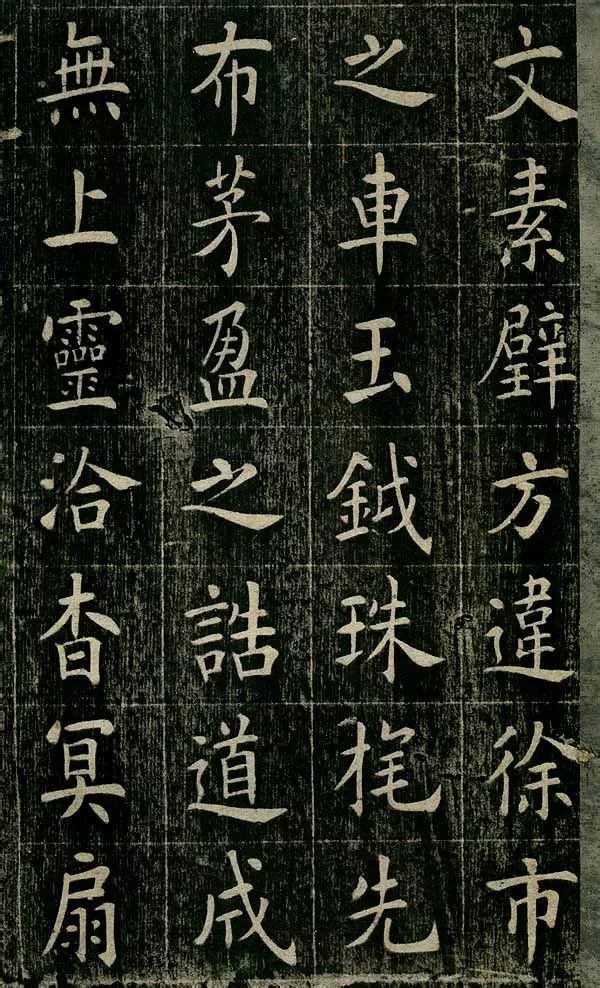 文素璧方違徐市
之車玉鉞珠旄先
布茅盈之誥道成
無上靈洽杳冥扇